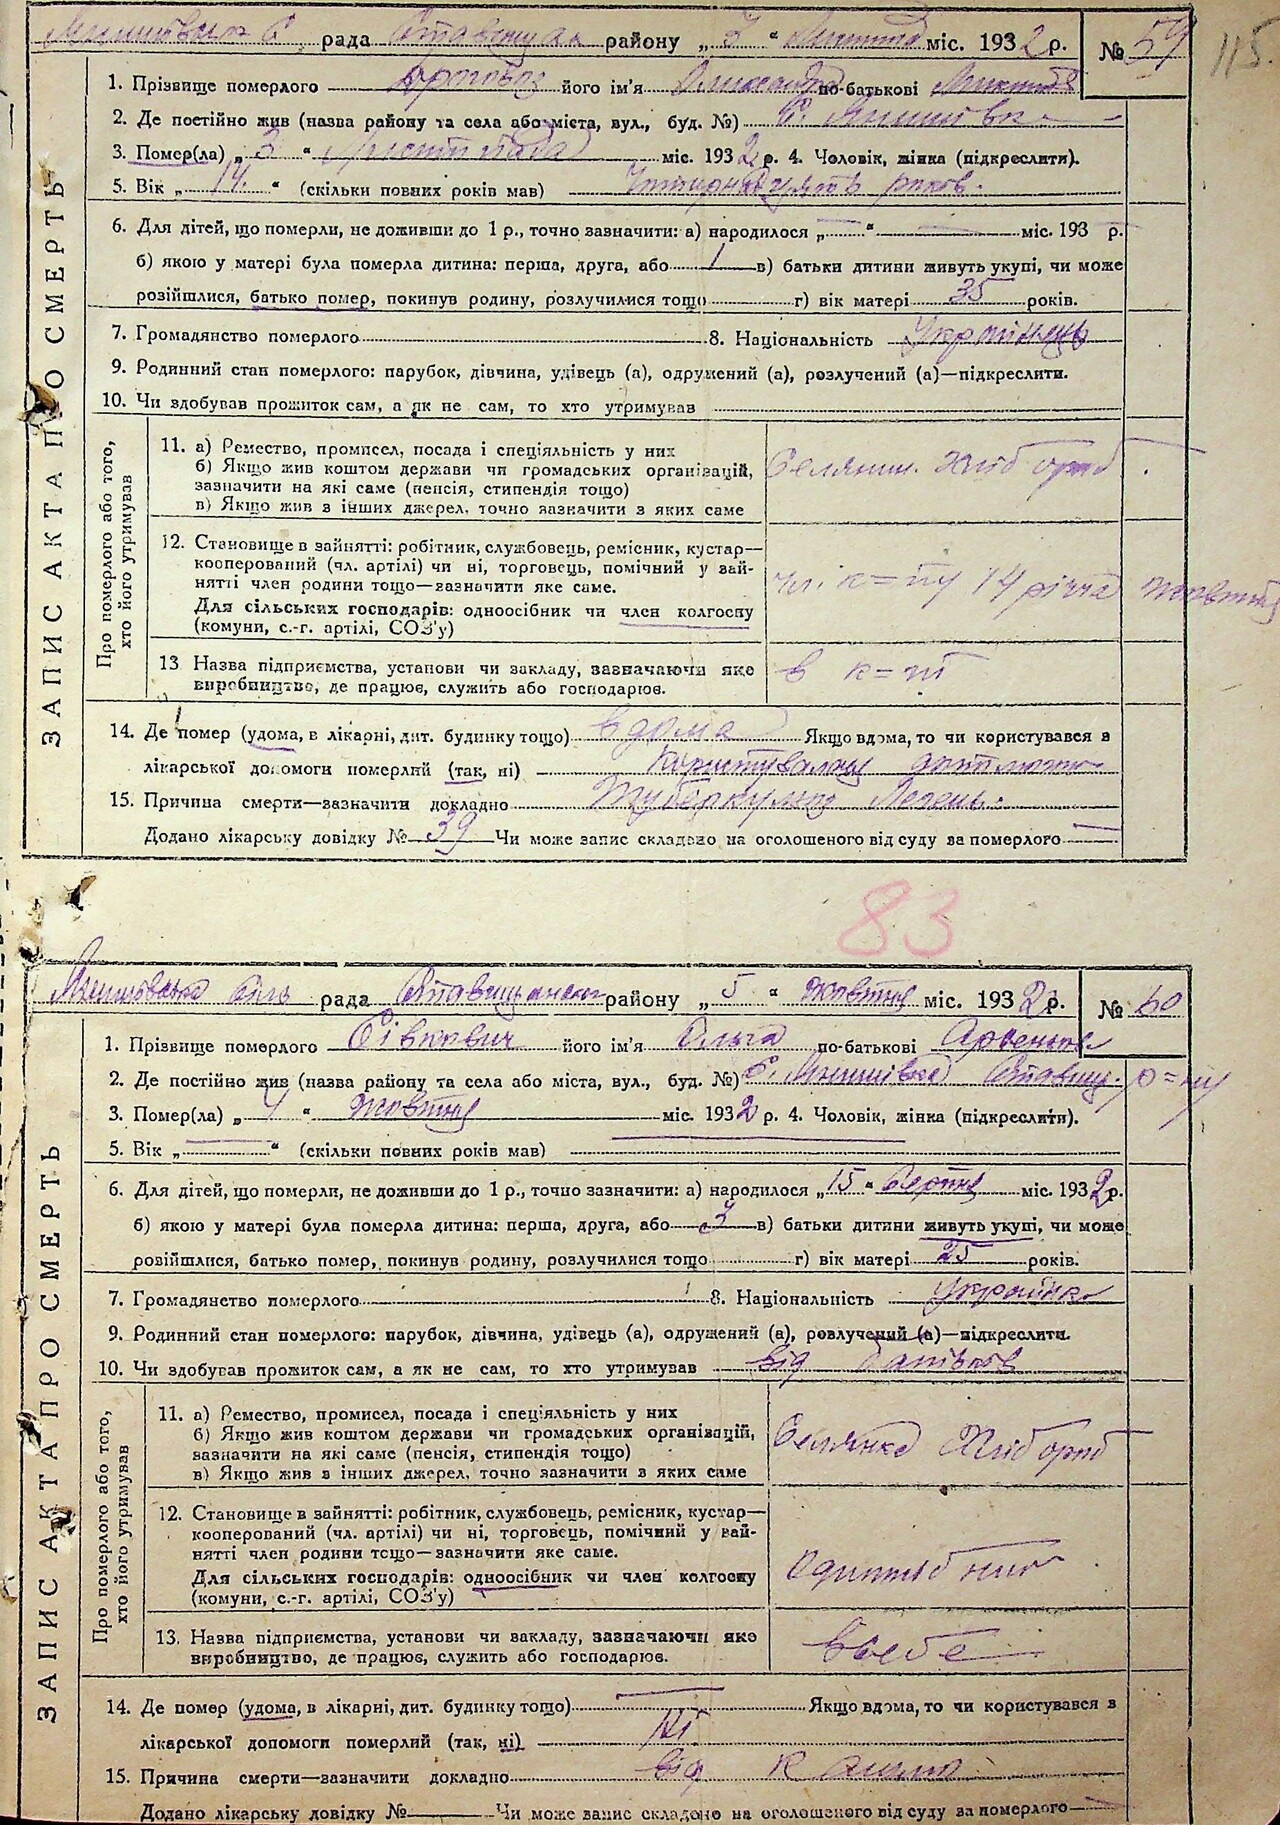 рада району „ 3 “ міс. 1932 р. № 59 115.
1. Прізвище померлого його ім'я Олександр по-батькові
2. Де постійно жив (назва району та села або міста, вул., буд. №) с. Янишівка
3. Помер(ла) „ 3 “ Листопада міс. 1932 р. 4. Чоловік, жінка (підкреслити).
5. Вік „ 14. “ (скільки повних років мав) років.
6. Для дітей, що померли, не доживши до 1 р., точно зазначити: а) народилося „ “ міс. 193 р.
б) якою у матері була померла дитина: перша, друга, або 1 в) батьки дитини живуть укупі, чи може
розійшлися, батько помер, покинув родину, розлучилися тощо г) вік матері 35 років.
7. Громадянство померлого 8. Національність Українець
9. Родинний стан померлого: парубок, дівчина, удівець (а), одружений (а), розлучений (а)—підкреслити.
10. Чи здобував прожиток сам, а як не сам, то хто утримував
11. а) Ремество, промисел, посада і спеціяльність у них
б) Якщо жив коштом держави чи громадських організацій,
зазначити на які саме (пенсія, стипендія тощо)
в) Якщо жив з інших джерел, точно зазначити з яких саме
Селянин. Хлібороб
12. Становище в зайнятті: робітник, службовець, ремісник, кустар—
кооперований (чл. артілі) чи ні, торговець, помічний у зай-
нятті член родини тощо—зазначити яке саме.
Для сільських господарів: одноосібник чи член колгоспу
(комуни, с.-г. артілі, СОЗ'у)
к=пу 14 річча
13. Назва підприємства, установи чи закладу, зазначаючи яке
виробництво, де працює, служить або господарює.
в к=пі
14. Де помер (удома, в лікарні, дит. будинку тощо) вдома Якщо вдома, то чи користувався в
лікарської допомоги померлий (так, ні)
15. Причина смерти—зазначити докладно Туберкульоз Легень.
Додано лікарську довідку № 39 Чи може запис складено на оголошеного від суду за померлого
Про померлого або того,
хто його утримував
ЗАПИС АКТА ПРО СМЕРТЬ
83
Янишівська Сіль рада Ставищанского району „ 5 “ жовтня міс. 1932 р. № 60
1. Прізвище померлого Сівкович його ім'я Ольга по-батькові
2. Де постійно жив (назва району та села або міста, вул., буд. №) С. Янишівка Ставищ. р=ну
3. Помер(ла) „ 4 “ жовтня міс. 1932 р. 4. Чоловік, жінка (підкреслити).
5. Вік „ “ (скільки повних років мав)
6. Для дітей, що померли, не доживши до 1 р., точно зазначити: а) народилося „ 15 “ Серпня міс. 1932 р.
б) якою у матері була померла дитина: перша, друга, або 3 в) батьки дитини живуть укупі, чи може
розійшлися, батько помер, покинув родину, розлучилися тощо г) вік матері 25 років.
7. Громадянство померлого 8. Національність Українка
9. Родинний стан померлого: парубок, дівчина, удівець (а), одружений (а), розлучений (а)—підкреслити.
10. Чи здобував прожиток сам, а як не сам, то хто утримував від батьків
11. а) Ремество, промисел, посада і спеціяльність у них
б) Якщо жив коштом держави чи громадських організацій,
зазначити на які саме (пенсія, стипендія тощо)
в) Якщо жив з інших джерел, точно зазначити з яких саме
Селянка Хлібороб
12. Становище в зайнятті: робітник, службовець, ремісник, кустар—
кооперований (чл. артілі) чи ні, торговець, помічний у зай-
нятті член родини тощо—зазначити яке саме.
Для сільських господарів: одноосібник чи член колгоспу
(комуни, с.-г. артілі, СОЗ'у)
13. Назва підприємства, установи чи закладу, зазначаючи яке
виробництво, де працює, служить або господарює.
в себе
14. Де помер (удома, в лікарні, дит. будинку тощо) Якщо вдома, то чи користувався в
лікарської допомоги померлий (так, ні) Ні
15. Причина смерти—зазначити докладно від
Додано лікарську довідку № Чи може запис складено на оголошеного від суду за померлого
Про померлого або того,
хто його утримував
ЗАПИС АКТА ПРО СМЕРТЬ